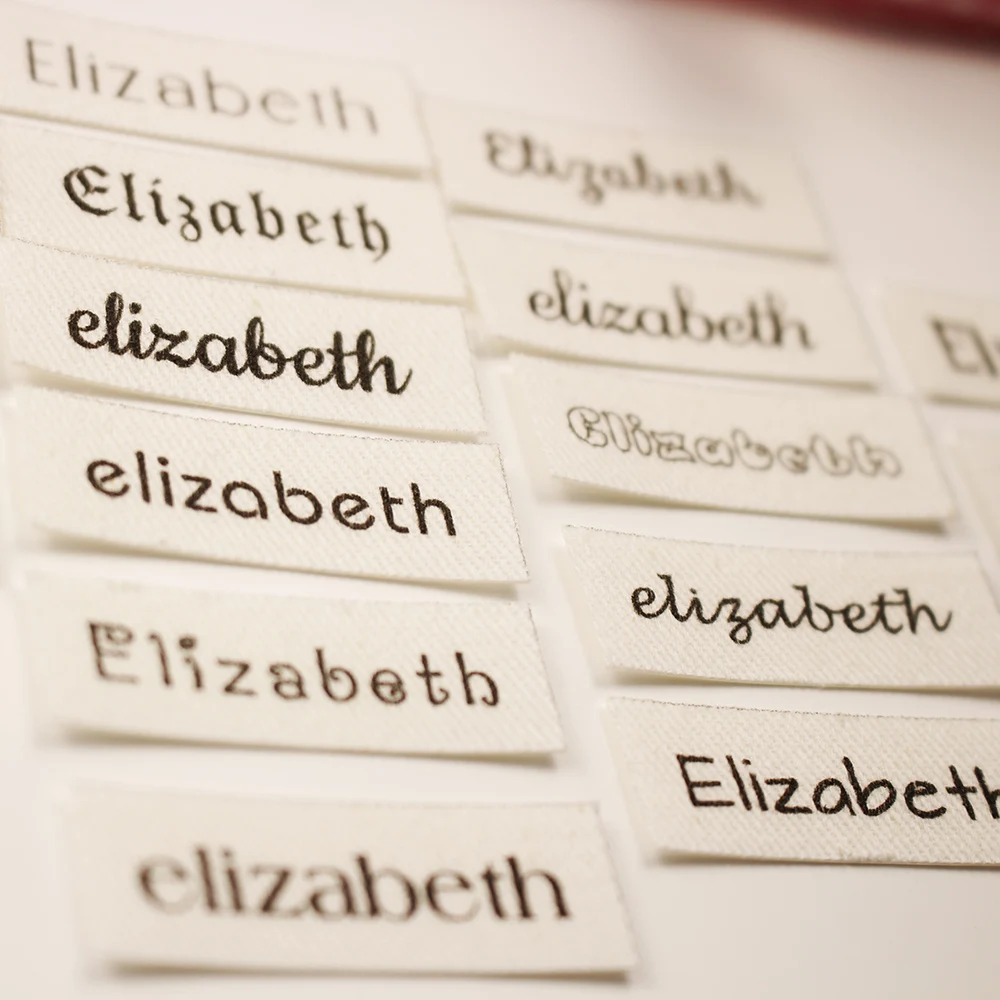 Elizabeth
Elizabeth
elizabeth
elizabeth
Elizabeth
elizabeth
Elizabeth
elizabeth
Elizabeth
elizabeth
Elizabeth